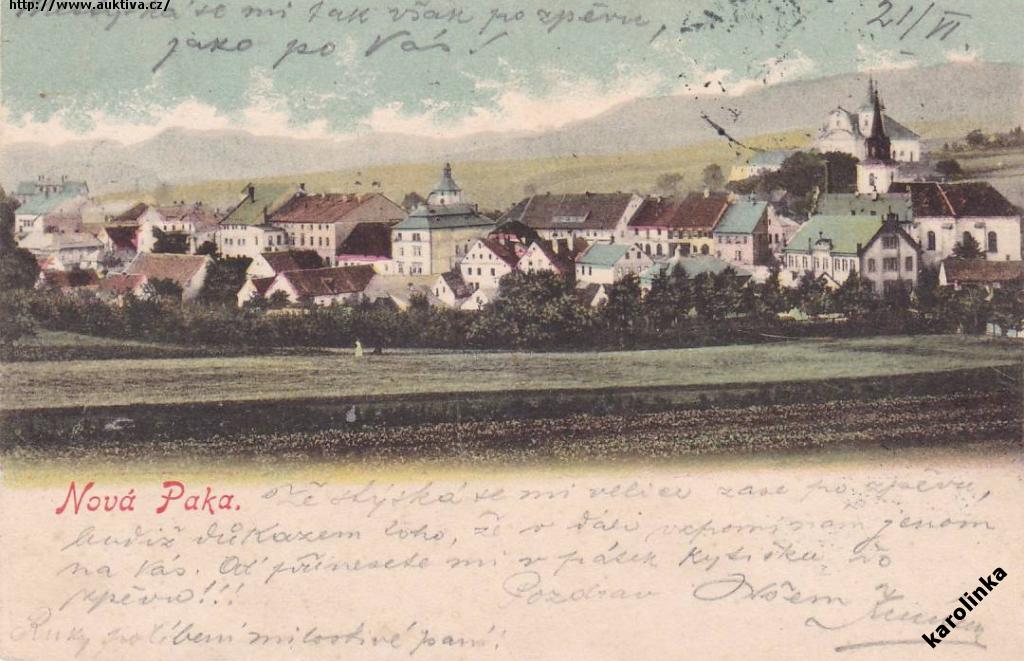 http://www.auktiva.cz/
se mi tak však po zpěvu,
jako po Vás!
21/VI
Nová Paka.
Že stýská se mi velice zase po zpěvu,
budiž důkazem toho, že v dáli vzpomínám jenom
na Vás. Ať přinesete mi v pátek kytičku do
zpěvu!!!
Pozdrav
Ruky políbení milostivé paní!
karolinka